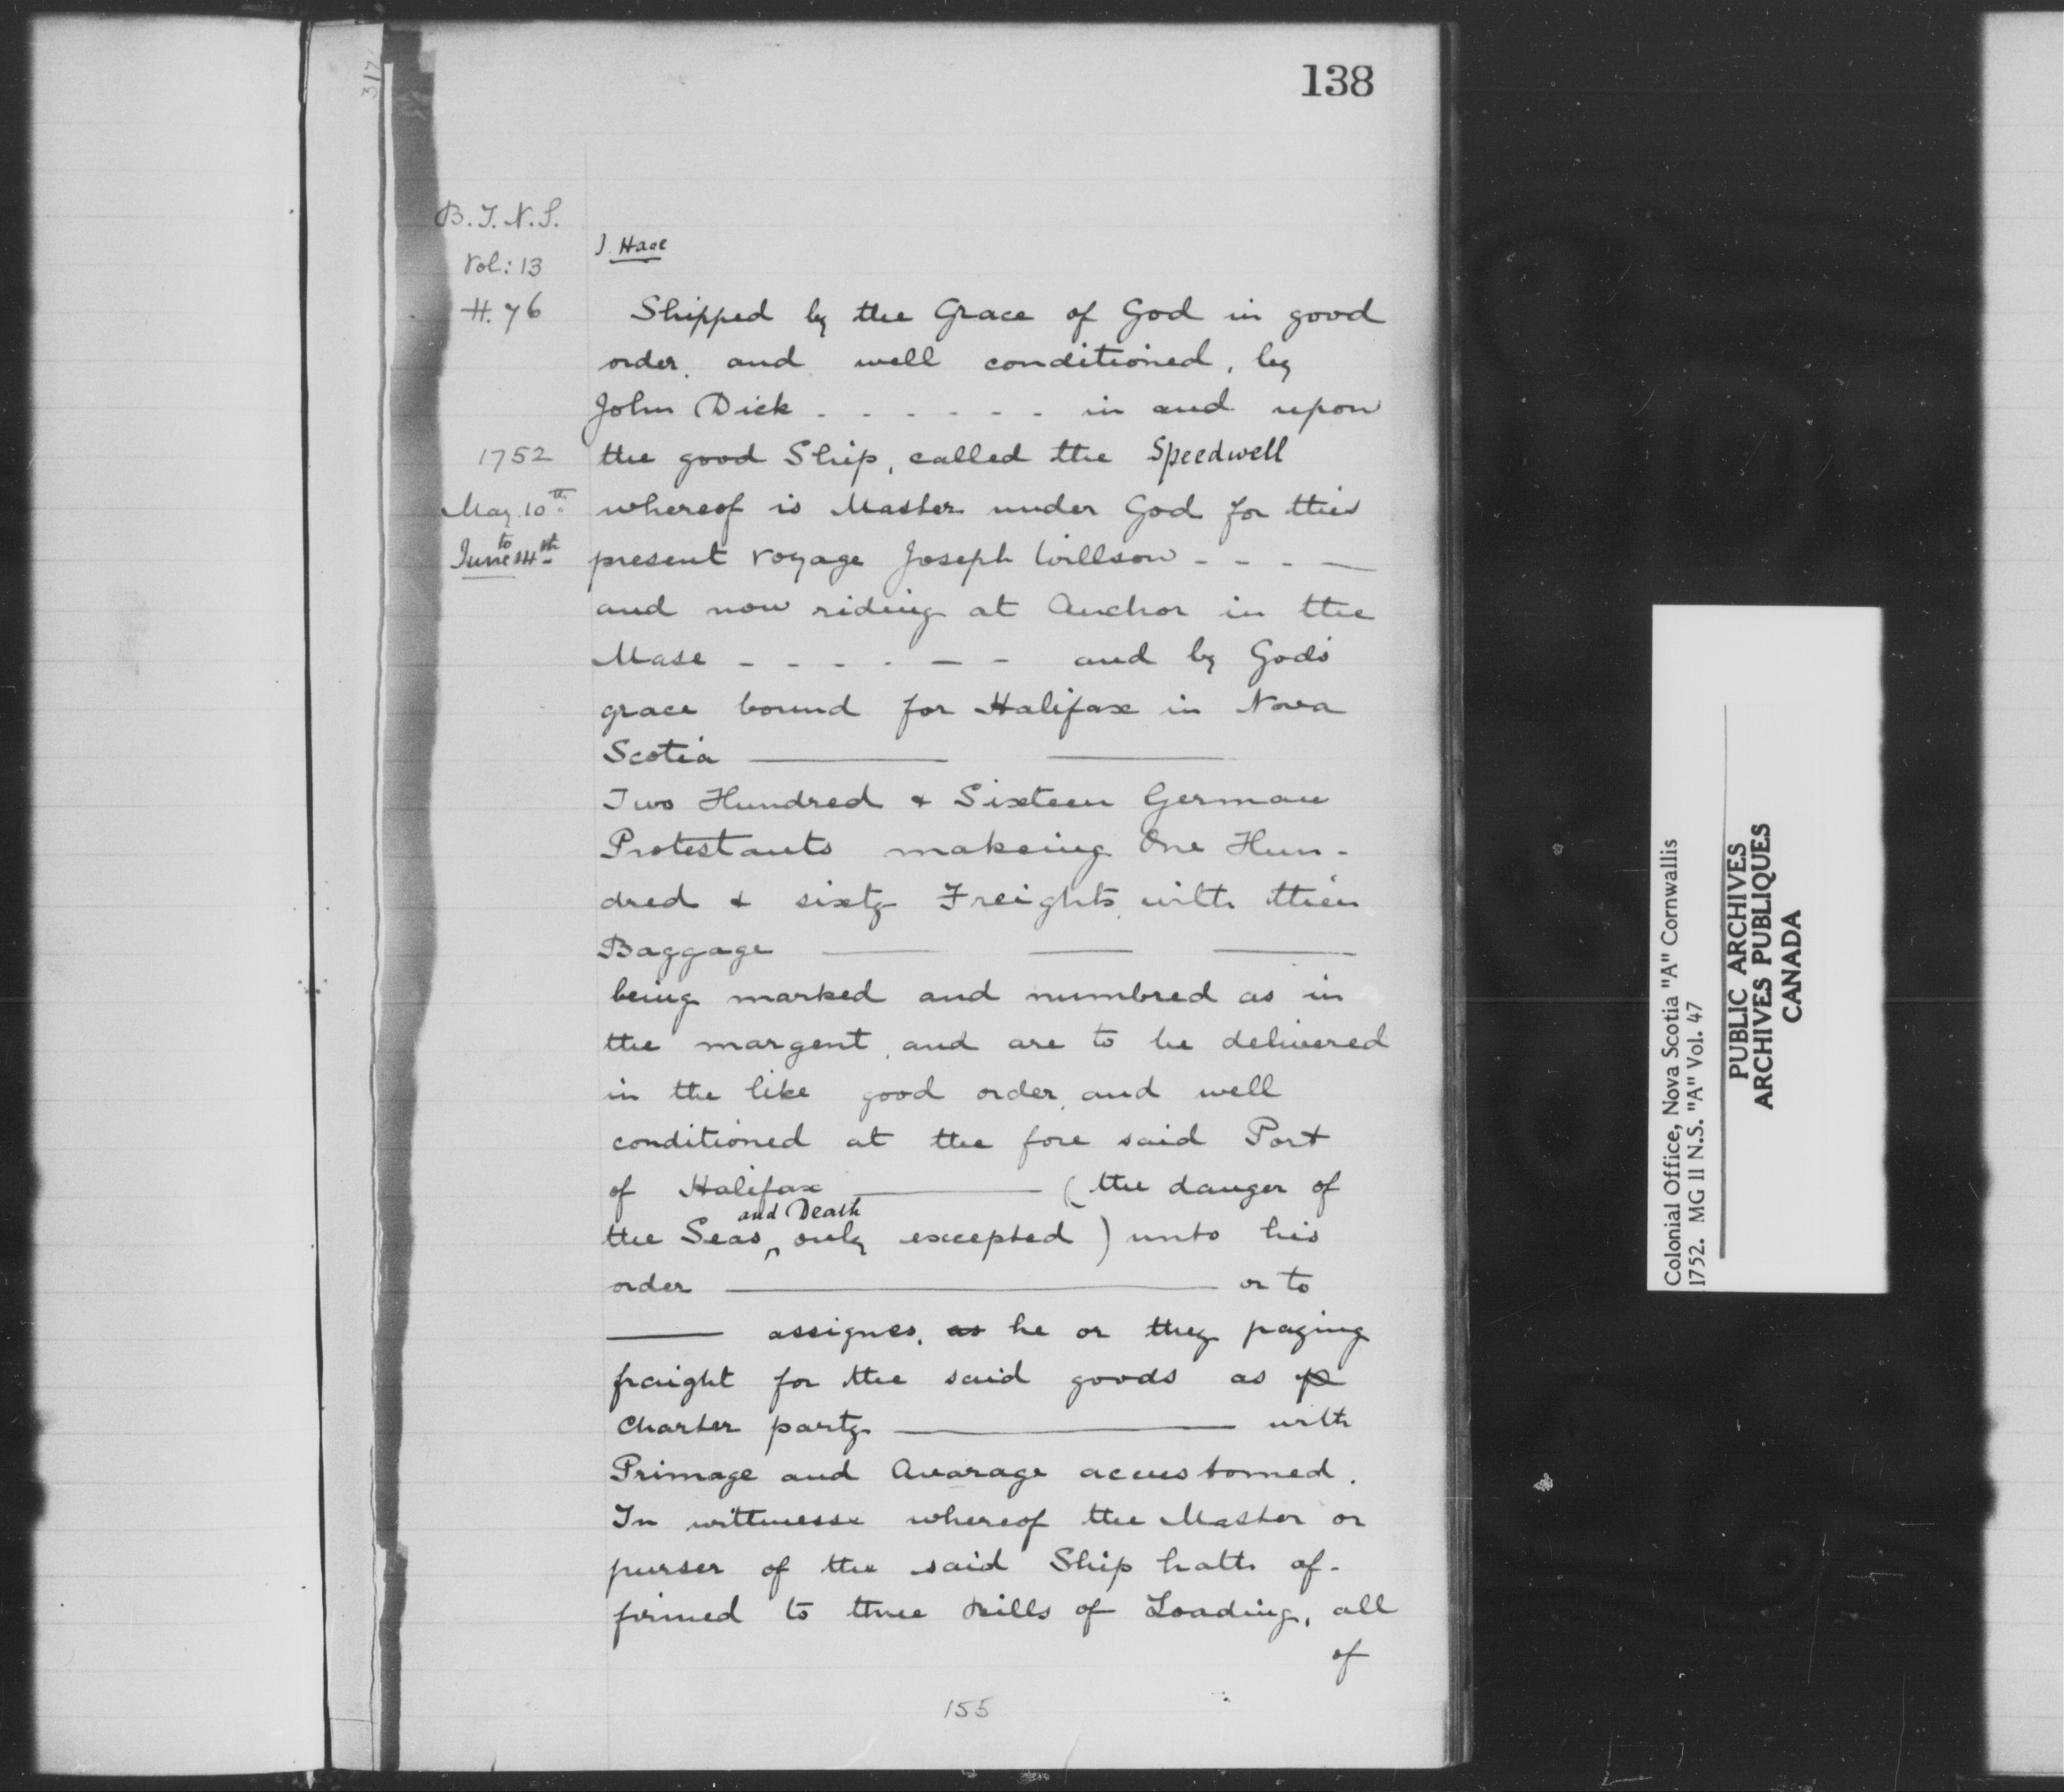 138
317
B.T.N.S.
Vol: 13
H. 76
J. Hace
Shipped by the Grace of God in good
order, and well conditioned, by
John Dick - - - - - - - in and upon
1752
the good Ship, called the Speedwell
May 10th
to
June 14th
whereof is Master under God for this
present voyage Joseph Willson - - - -
and now riding at Anchor in the
Mase - - - - - - and by God's
grace bound for Halifax in Nova
Scotia
Two Hundred & Sixteen German
Protestants makeing One Hun-
dred & sixty Freights with their
Baggage
being marked and numbred as in
the margent, and are to be delivered
in the like good order, and well
conditioned at the fore said Port
of Halifax (the danger of
and Death
the Seas ^ only excepted) unto his
order or to
assignes, as he or they paying
fraight for the said goods as p
Charter party with
Primage and Avarage accustomed.
In wittnesse whereof the Master or
purser of the said Ship hath af-
firmed to three Bills of Loading, all
of
155
Colonial Office, Nova Scotia "A" Cornwallis
1752. MG 11 N.S. "A" Vol. 47
PUBLIC ARCHIVES
ARCHIVES PUBLIQUES
CANADA